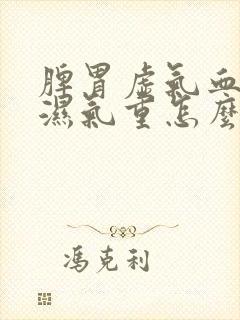 脾胃虛氣血
濕氣重怎麼
馮克利